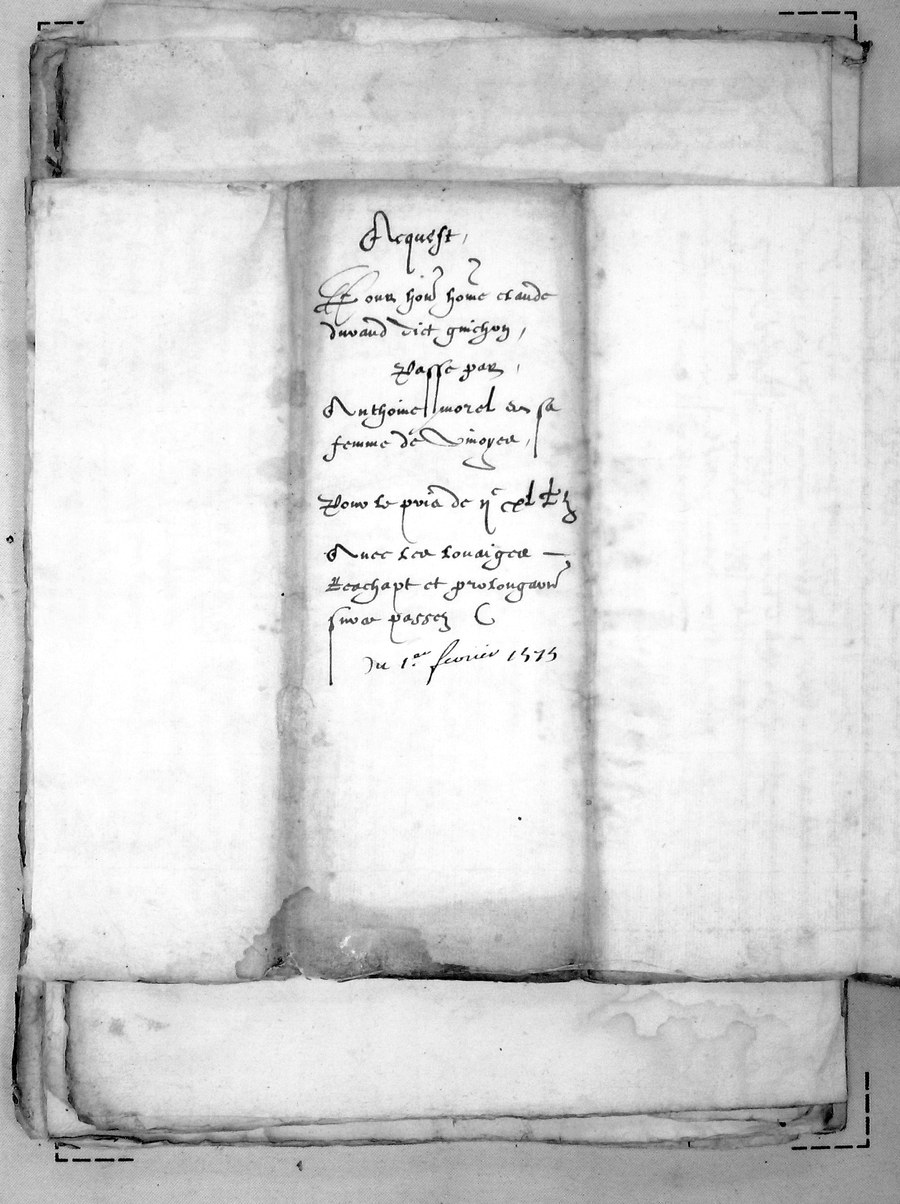 Acquest,
Pour hon home claude
durand dict guichon,
Passe par,
Anthoine morel et sa
femme de
Pour le pris de ijc xl lt
Avec les louaiges
Reachapt et prolongaon
sur ce passez
Du 1er fevrier 1575